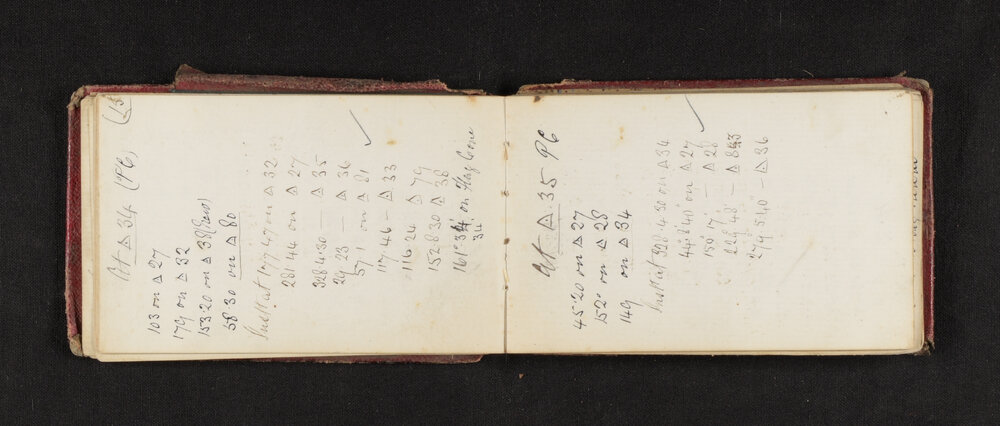 (15
At △ 34 (PC)
103 on △ 27
179 on △ 32
153.20 on △ 38
58 30 on △ 80
Inst at 177 47 on △ 32
281 44 on △ 27
328 4 30 — △ 35
29 23 — △ 36
57 1 on △ 81
117 46 — △ 33
116 24 △ 79
152 8 30 △ 38
161° 34 on Flag Cone
34
At △ 35 PC
45.20 on △ 27
152° on △ 28
149 on △ 34
Inst at 328 4 30 on △ 34
44° 2 40 on △ 27
150° 17 — △ 28
229 48 — △ 83
279 5 40 — △ 36